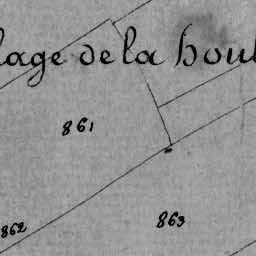 lage de la houl
861
862
863